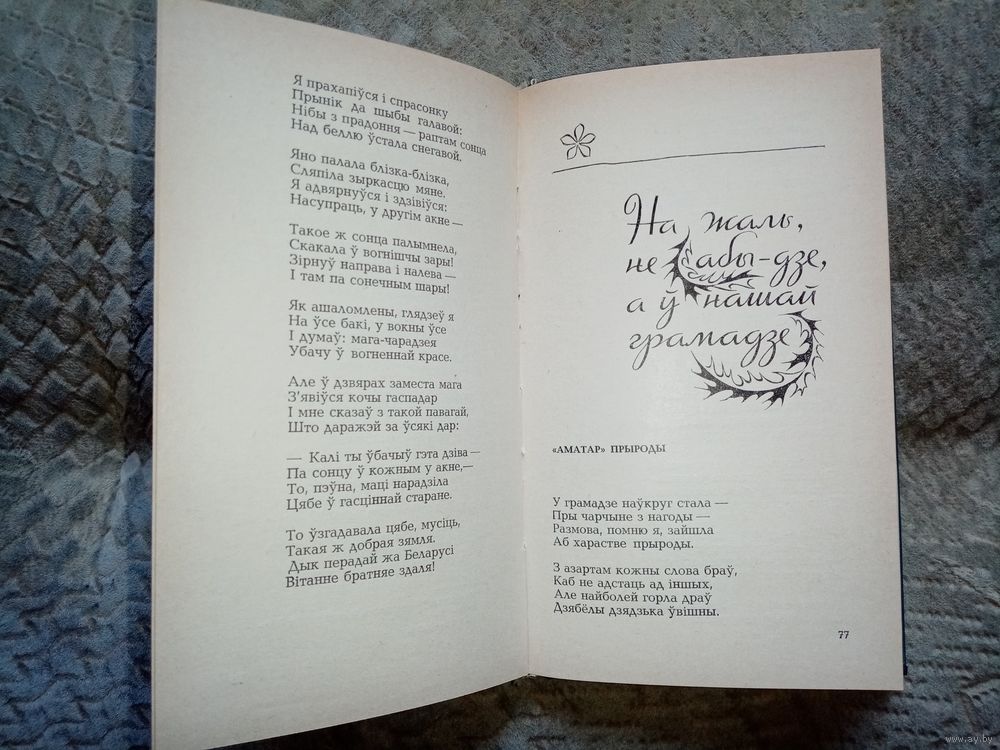 Я прахапіўся і спрасонку
Прынік да шыбы галавой:
Нібы з прадоння — раптам сонца
Над беллю ўстала снегавой.
Яно палала блізка-блізка,
Сляпіла зыркасцю мяне.
Я адвярнуўся і здзівіўся:
Насупраць, у другім акне —
Такое ж сонца палымнела,
Скакала ў вогнішчы зары!
Зірнуў направа і налева —
І там па сонечным шары!
Як ашаломлены, глядзеў я
На ўсе бакі, у вокны ўсе
І думаў: мага-чарадзея
Убачу ў вогненнай красе.
Але ў дзвярах заместа мага
З’явіўся кочы гаспадар
І мне сказаў з такой павагай,
Што даражэй за ўсякі дар:
— Калі ты ўбачыў гэта дзіва —
Па сонцу ў кожным у акне,—
То, пэўна, маці нарадзіла
Цябе ў гасціннай старане.
То ўзгадавала цябе, мусіць,
Такая ж добрая зямля.
Дык перадай жа Беларусі
Вітанне братняе здаля!
На жаль,
не абы-дзе,
а ў нашай
грамадзе
«АМАТАР» ПРЫРОДЫ
У грамадзе наўкруг стала —
Пры чарчыне з нагоды —
Размова, помню я, зайшла
Аб харастве прыроды.
З азартам кожны слова браў,
Каб не адстаць ад іншых,
Але найболей горла драў
Дзябёлы дзядзька ўвішны.
77
www.ay.by